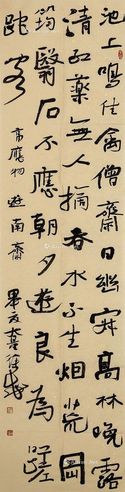 池上鳴佳禽僧齋日幽寂高林晚露
清紅藥無人摘春水不生烟荒岡
筠翳石不應朝夕遊良為蹉
跎客
韋應物遊南齋